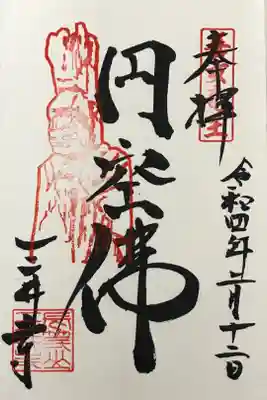 奉拝
令和四年二月十二日
円空佛
三井寺